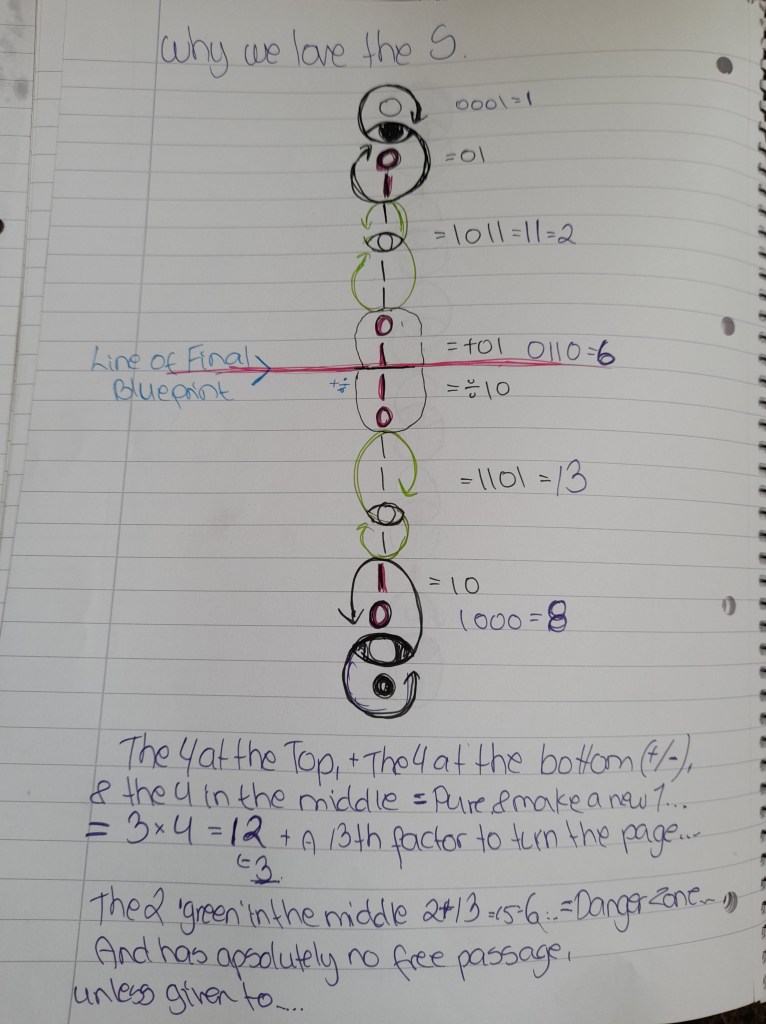 Why we love the S.
0001=1
=01
=1011=11=2
0
1
Line of Final
Blueprint
=+01 0110=6
+÷
=÷10
1
0
=1101=13
=10
1000=8
The 4 at the Top, + The 4 at the bottom (+/-),
& the 4 in the middle = Pure & make a new 1...
= 3×4 = 12 + A 13th factor to turn the page...
=3
The 2 'green' in the middle 2+13=15=6... =Danger Zone...
And has apsolutely no free passage,
unless given to....